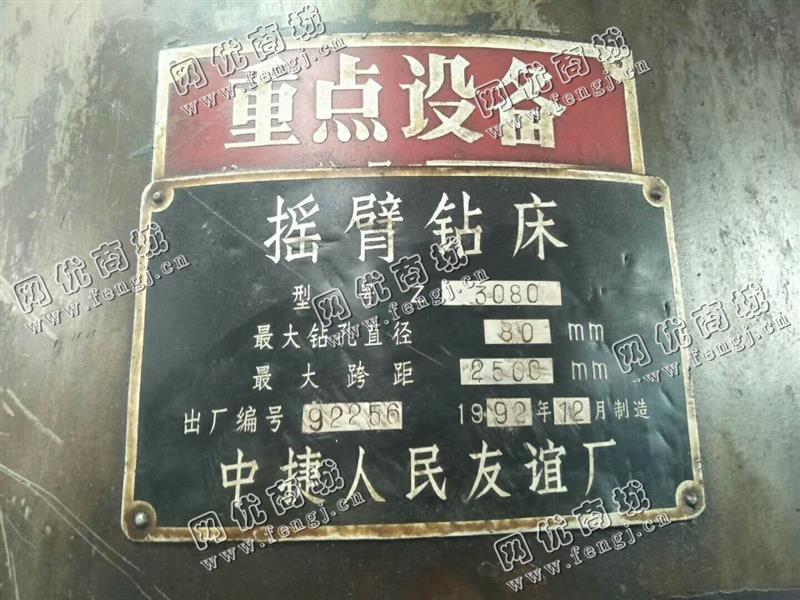 重点设备
摇臂钻床
型号 Z 3080
最大钻孔直径 80 mm
最大跨距 2500 mm
出厂编号 92256 1992年12月制造
中捷人民友谊厂
网优商城
www.fengj.cn
网优商城
www.fengj.cn
网优商城
www.fengj.cn
网优商城
www.fengj.cn
网优商城
www.fengj.cn
网优商城
www.fengj.cn
网优商城
www.fengj.cn